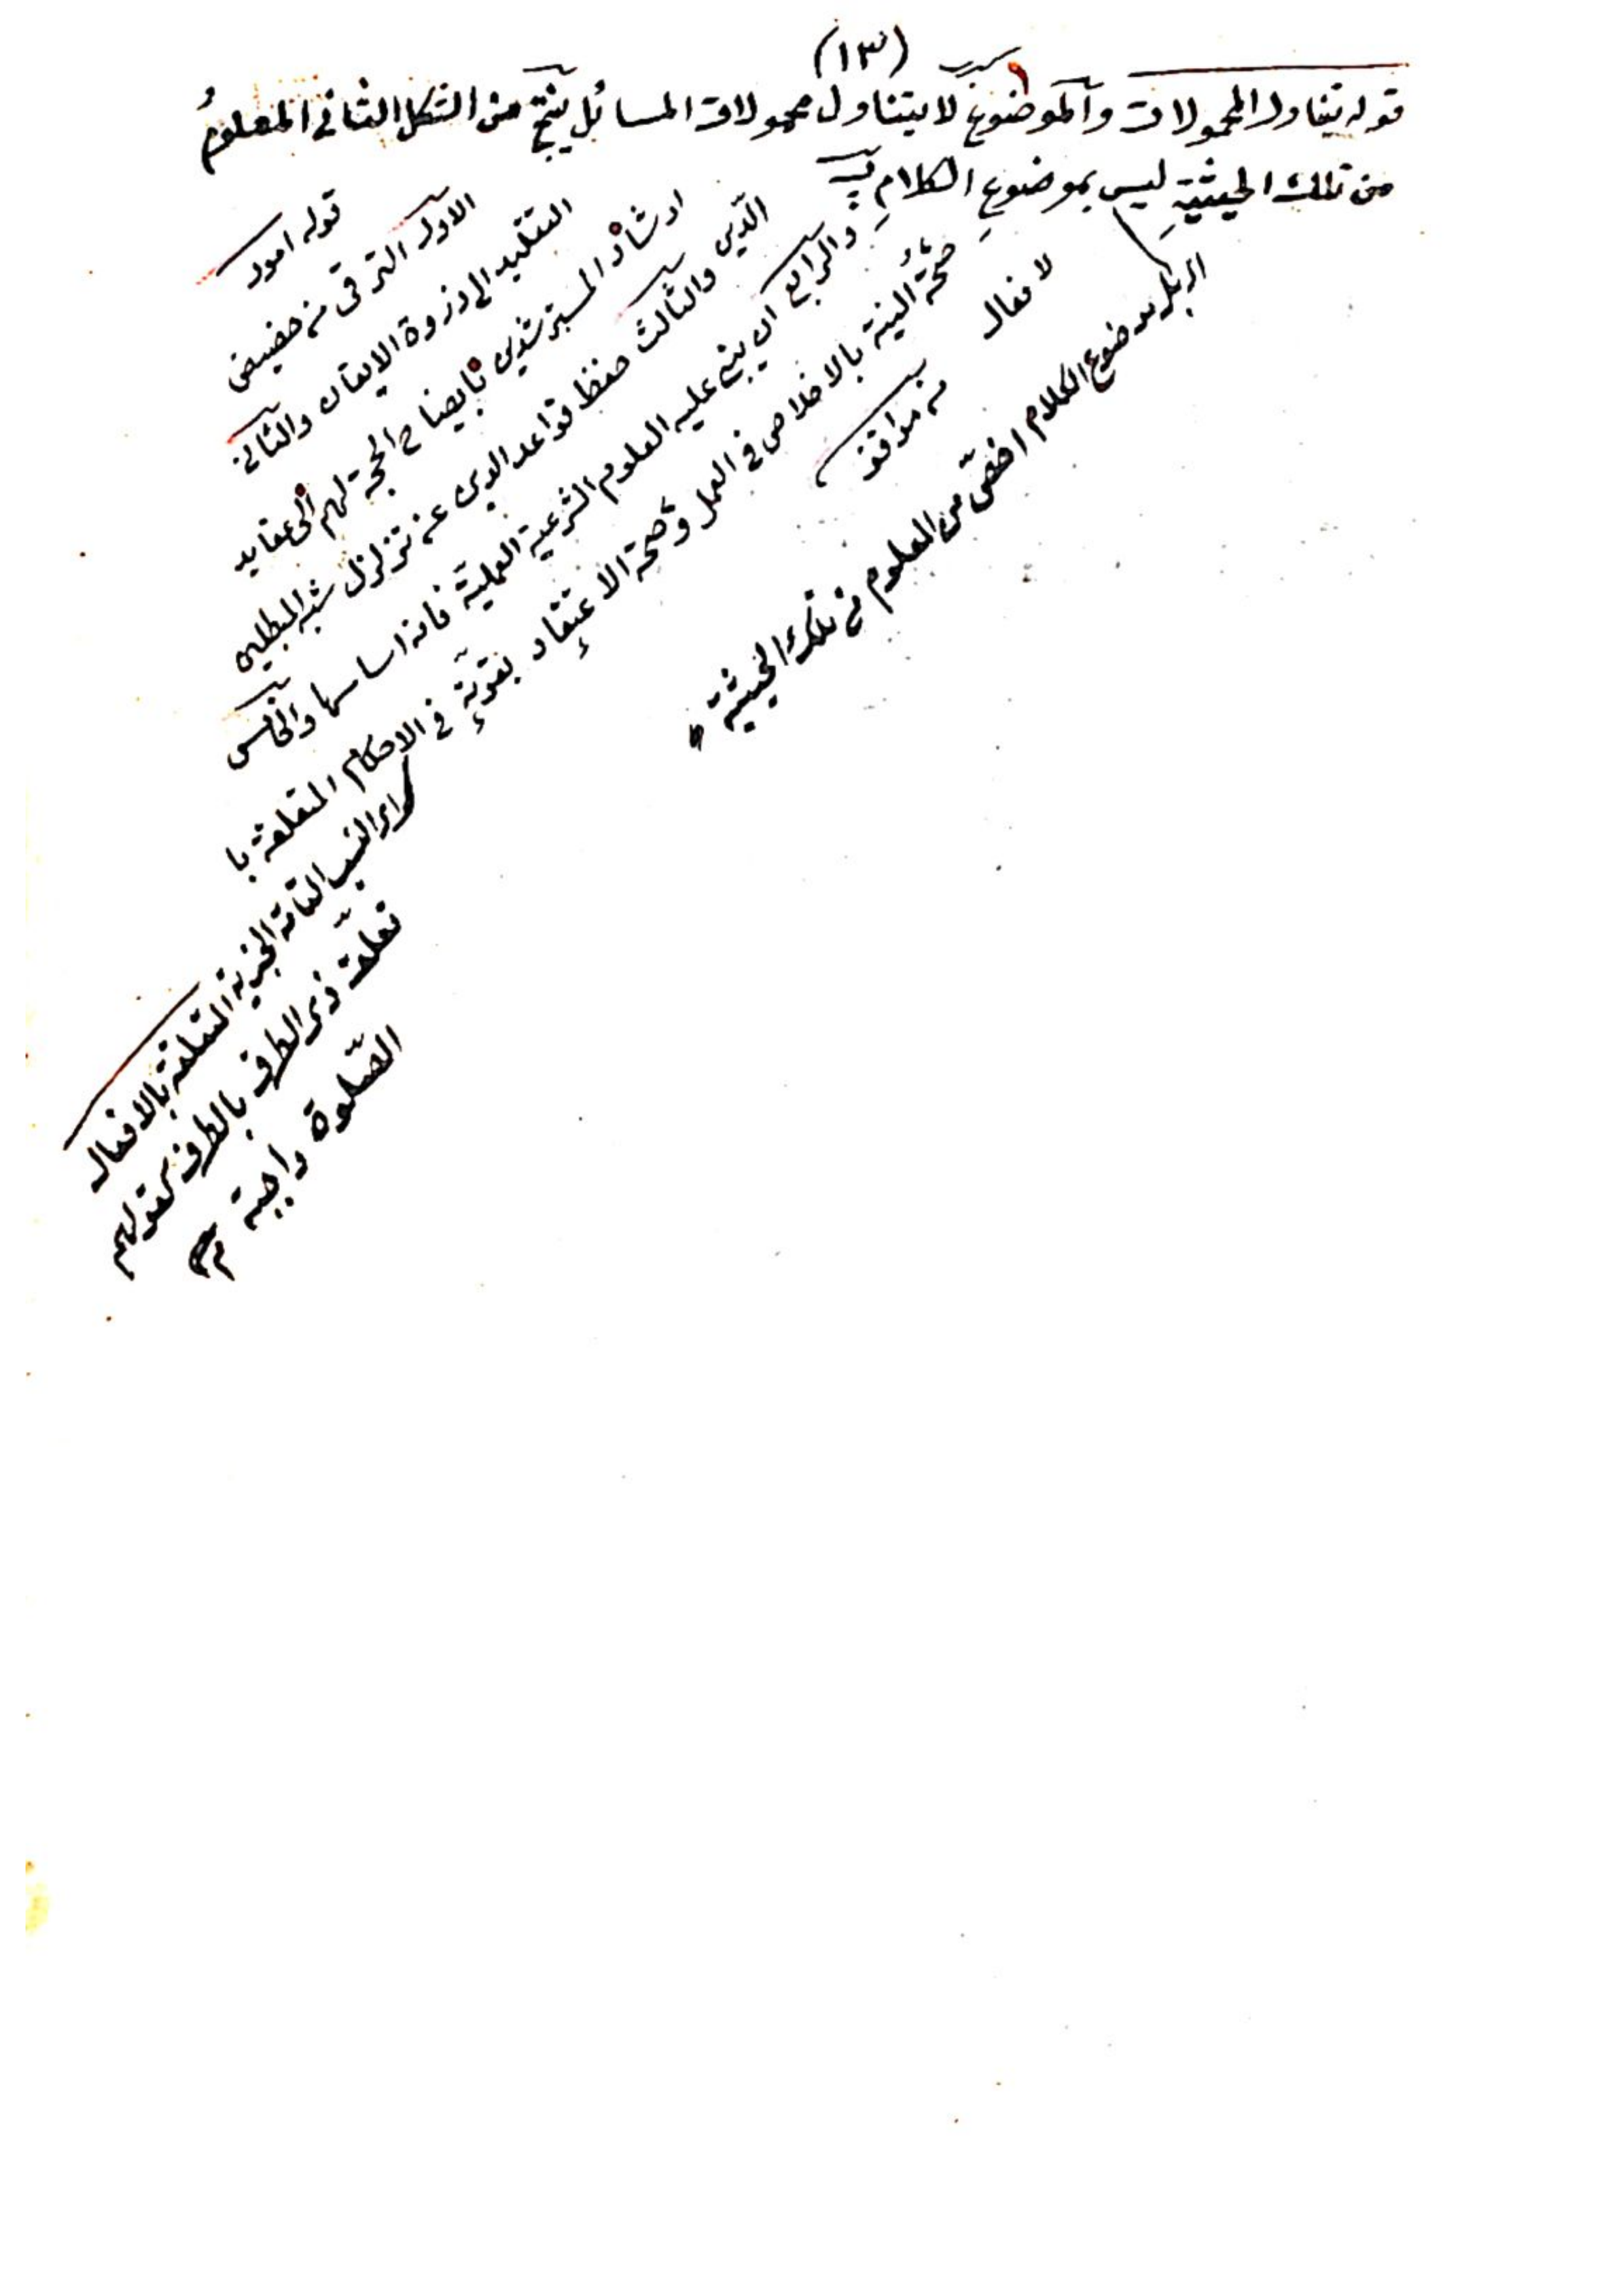 (١٣)
قوله يتناول المحمولات والموضوع لا يتناول محمولات المسائل ينتج من الشكل الثاني المعلوم
من تلك الحيثية ليس بموضوع الكلام
اى بل موضوع الكلام اخصّ من المعلوم من تلك الحيثية
قوله امور
الاول الترقى من حضيض
التقليد الى ذروة الايقان والثانى
ارشاد المسترشدين بايضاح الحجة لهم الى عقايد
الدين والثالث حفظ قواعد الدين عن تزلزل شبه المبطلين
والرابع ان يبنى عليه العلوم الشرعية العملية فانه اساسها والخامس
صحة النية بالاخلاص فى العمل وصحة الاعتقاد بقوته فى الاحكام المتعلقة با
لافعال
من مواقف
اى النسب التامة الخبرية المتعلقة بالافعال
تعلّق ذى الطرف بالطرف كقولهم
الصّلوة واجبة